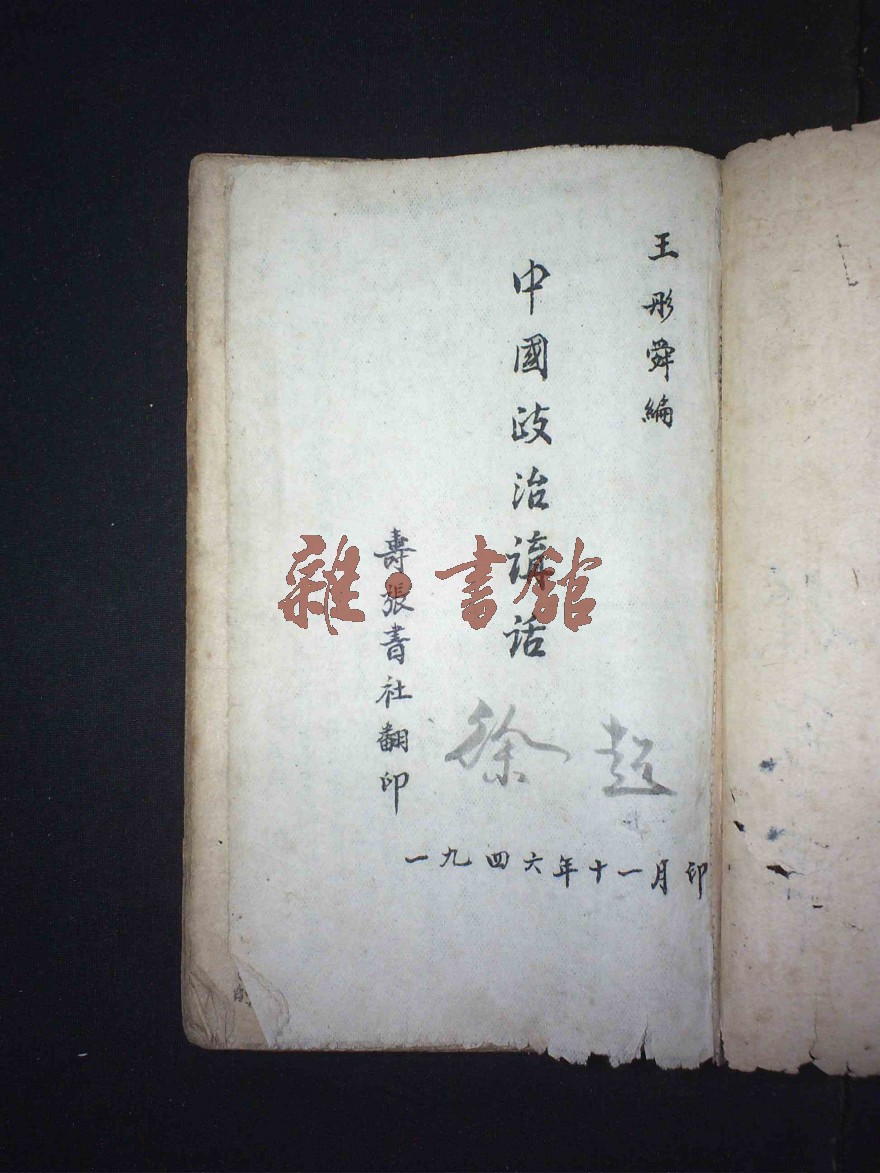 王彤舜編
中國政治講话
壽張書社翻印
徐超
一九四六年十一月印
雜·書舘